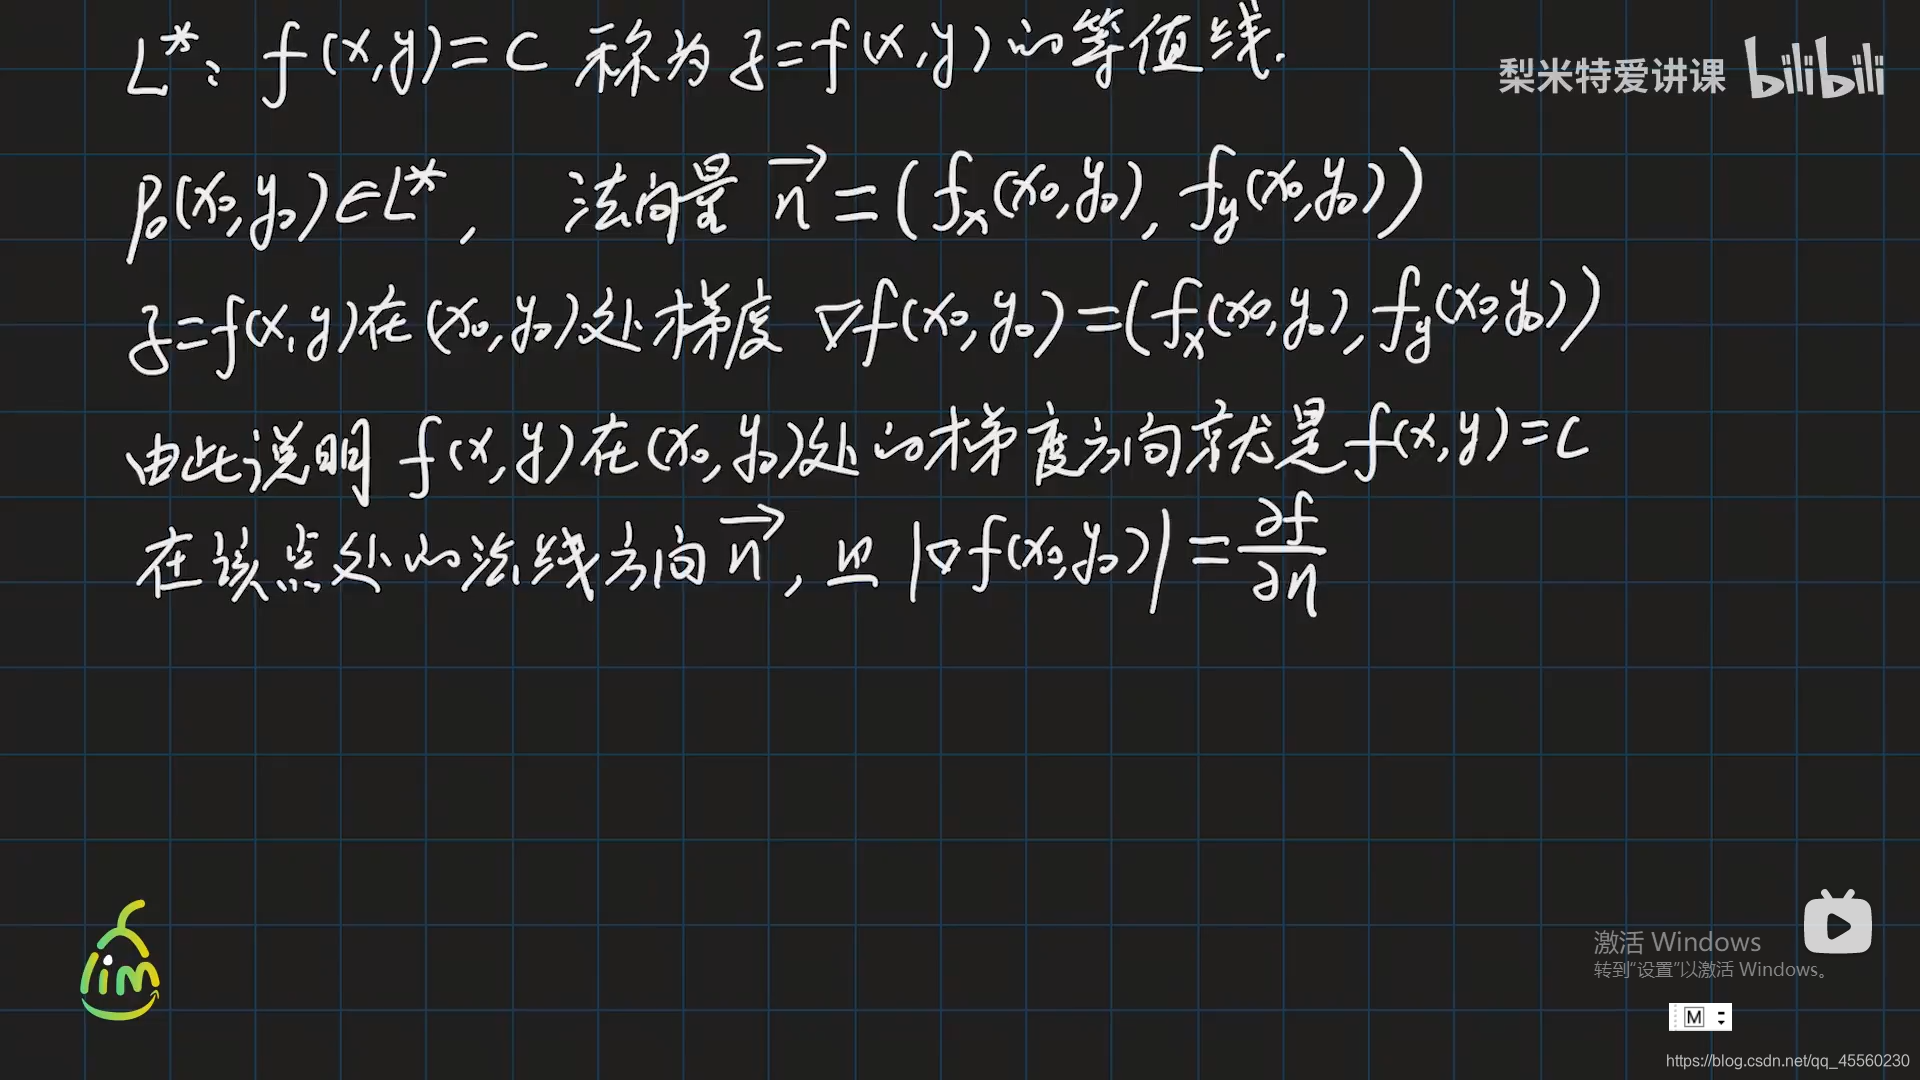 L*: f(x,y)=C 称为 z=f(x,y) 的等值线.
梨米特爱讲课 bilibili
P₀(x₀,y₀)∈L*, 法向量 n⃗=(fₓ(x₀,y₀), f_y(x₀,y₀))
z=f(x,y)在(x₀,y₀)处梯度 ∇f(x₀,y₀)=(fₓ(x₀,y₀), f_y(x₀,y₀))
由此说明 f(x,y)在(x₀,y₀)处的梯度方向就是f(x,y)=C
在该点处的法线方向n⃗, 且 |∇f(x₀,y₀)|=∂f/∂n
lim
激活 Windows
转到“设置”以激活 Windows。
M
https://blog.csdn.net/qq_45560230